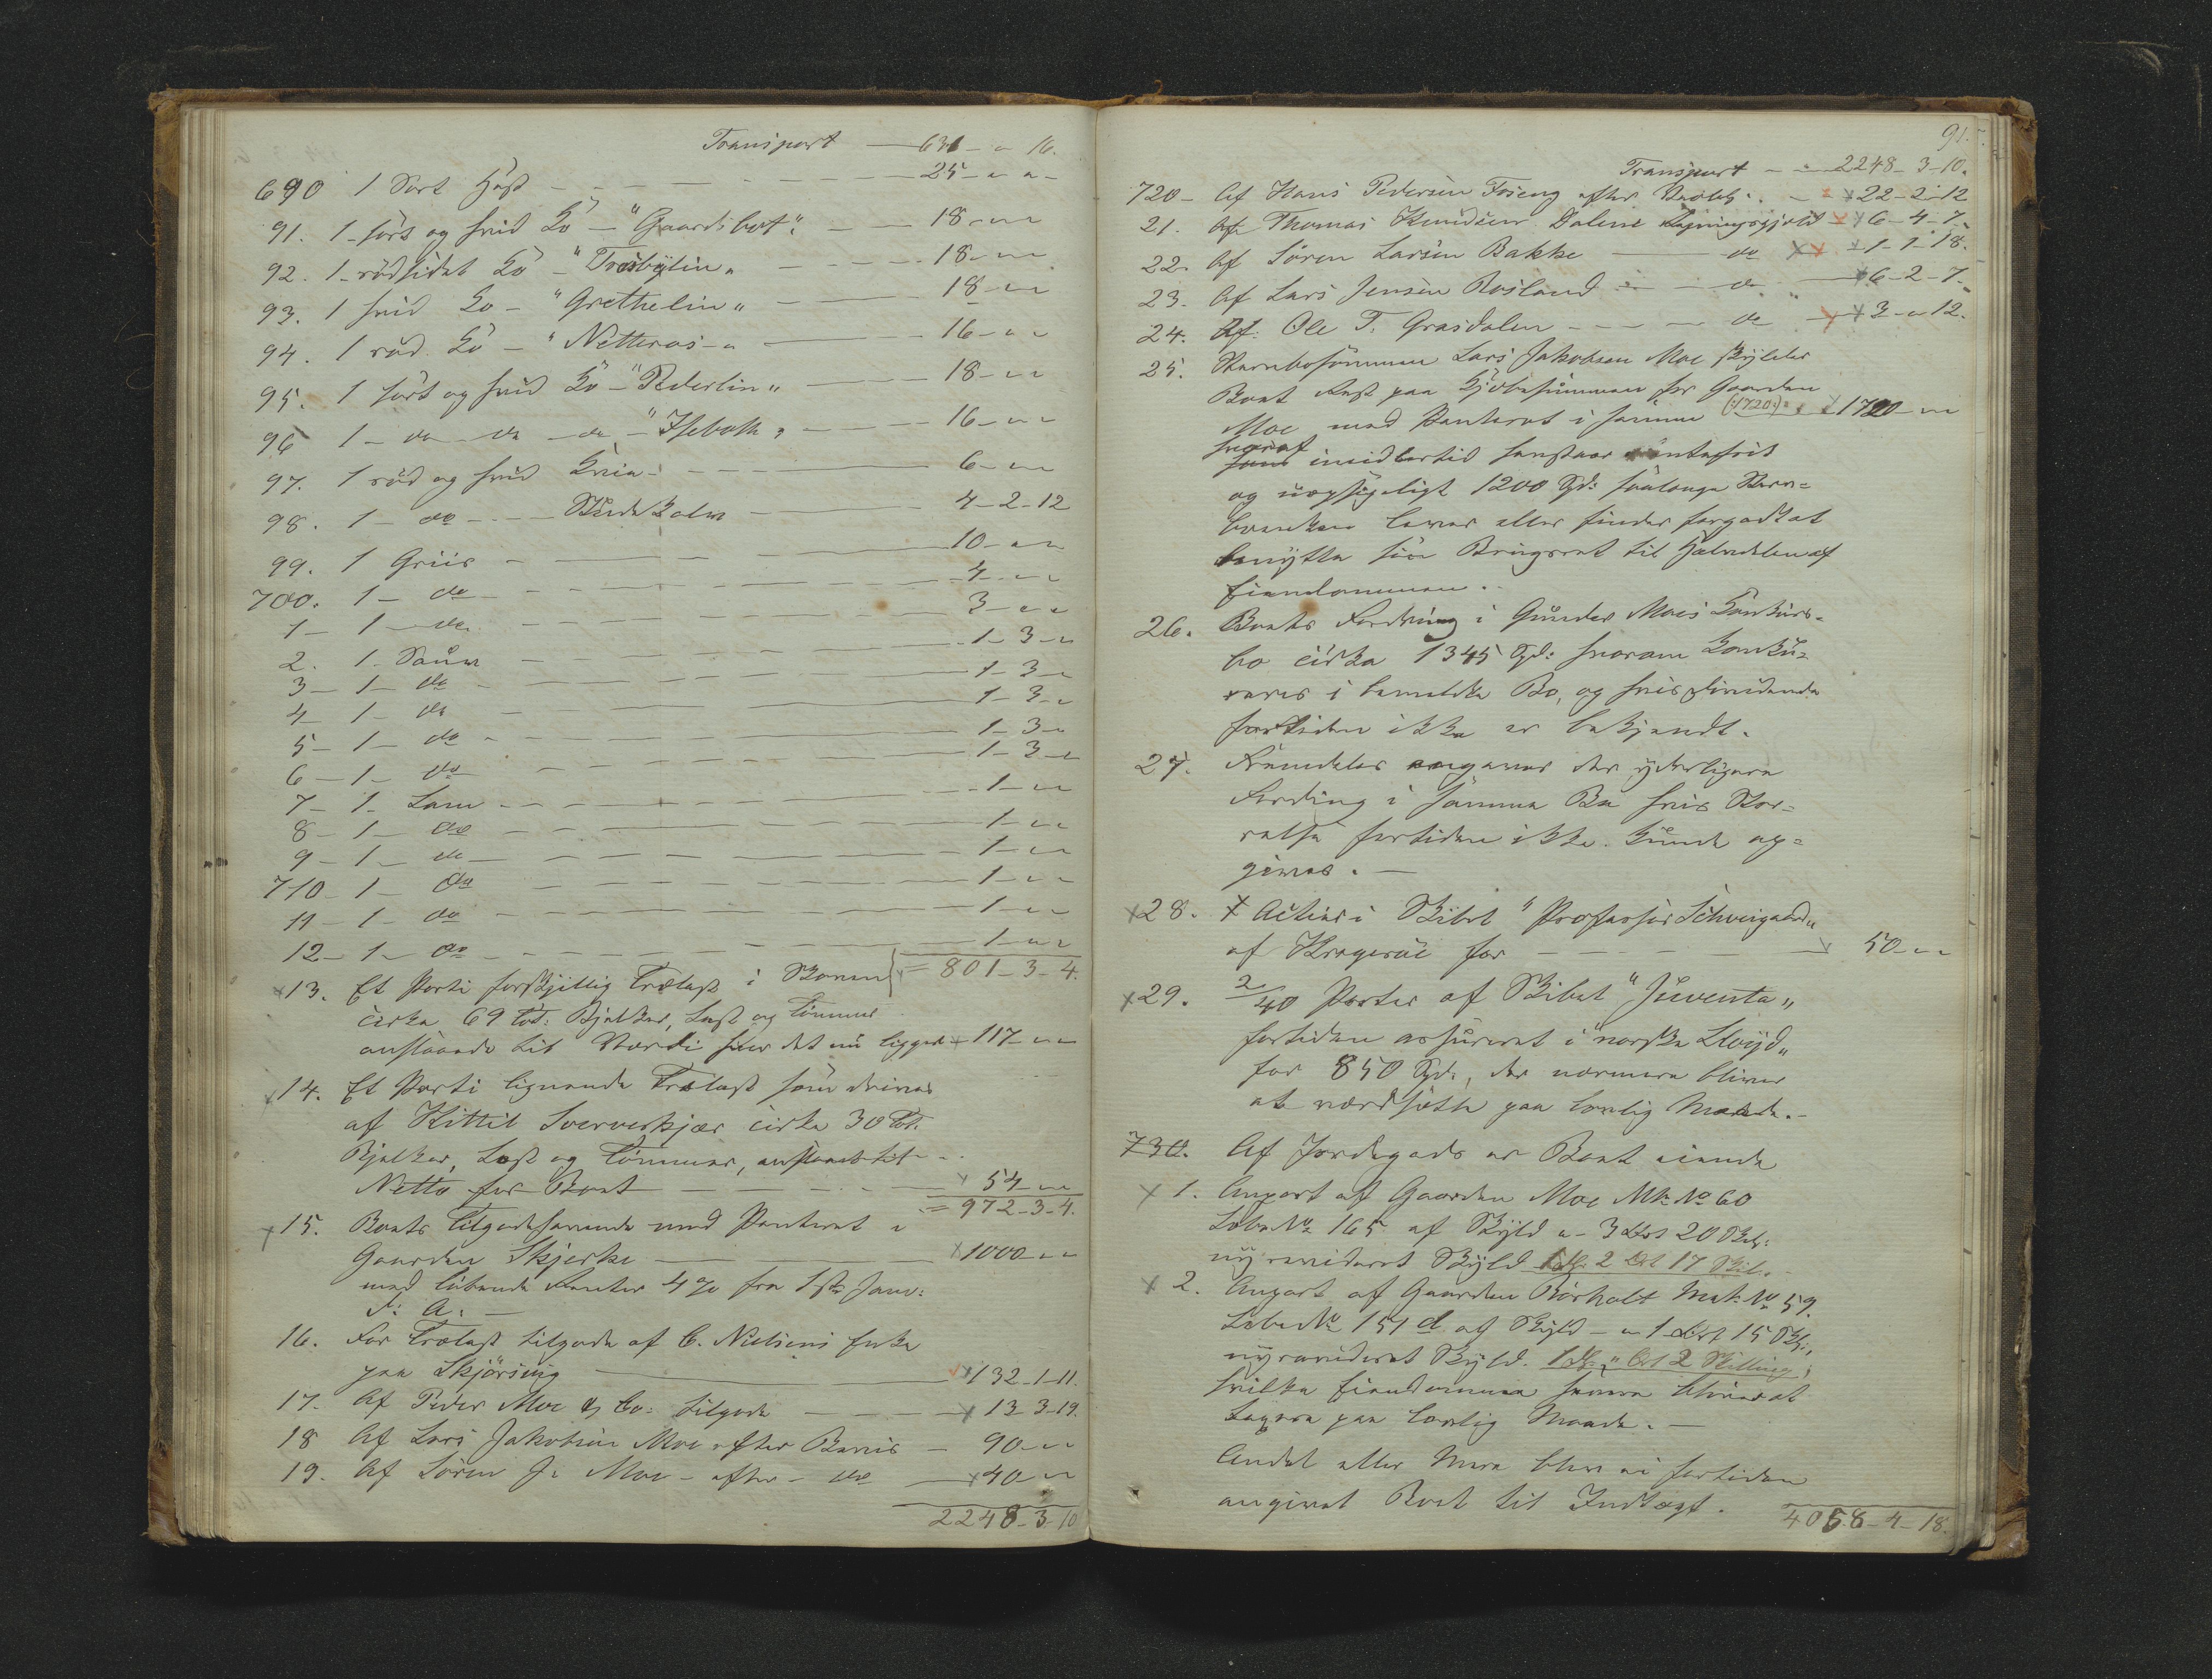 Transport — 631 - " 16.
690 1 Sort Hest — 25 - " " -
91. 1 - sort og hvid Ko - "Gaardsbot" — 18 - " "
92. 1 - rödsidet Ko - "Trosbylin" — 18 - " "
93. 1 hvid Ko - "Grethelin" — 18 - " "
94. 1 röd Ko - "Netteros" — 16 - " "
95. 1 sort og hvid Ko - "Pederlin" — 18 - " "
96 1 - do - do - do - — 16 - " "
97. 1 röd og hvid Kvie — 6 - " "
98. 1 - do — Studekalv — 4 - 2 - 12
99. 1 Griis — 10 - " "
700. 1 - do — 4 - " "
1 - 1 - do — 3 - " "
2. 1 - Sau — 1 - 3 - "
3 - 1 - do — 1 - 3 - "
4 1 - do — 1 - 3 - "
5 - 1 - do — 1 - 3 - "
6 - 1 - do — 1 - 3 - "
7 - 1 - Lam — 1 - " "
8 - 1 - do — 1 - " "
9 - 1 - do — 1 - " "
710 - 1 - do — 1 - " "
11 - 1 - do — 1 - " "
12 - 1 - do — 1 - " "
x13. Et Parti forskjellig Trælast i Skoven = 801 - 3 - 4.
cirka 69 Tvt: Bjelker, Last og Tömmer
anslaaede til Værdi som det nu ligger x 117 - " "
x14. Et Parti lignende Trælast som drives
af Kittil Sververkjær cirka 30 Tvt.
Bjelker, Last og Tömmer, anslaaet til
Netto for Boet — x 54 - " "
= 972 - 3 - 4.
x15. Boets Tilgodehavende med Panteret i
Gaarden Skjerke — x 1000 - " "
med löbende Renter 4 % fra 1ste Janv:
d: A: —
16. For Trælast tilgode af C. Nielsens Enke
paa Skjörsing — x 132 - 1 - 11.
17. Af Peder Moe & Co: tilgode — x 13 - 3 - 19.
18 Af Lars Jakobsen Moe efter Beviis — 90 - " "
19. Af Sören J. Moe - efter - do — x 40 - " "
2248 - 3 - 10
91.
Transport — 2248 - 3 - 10.
720 - Af Hans Pedersen Foseng efter — x 22 - 2 - 12
21. Af Thomas Knudsen Dalene — x 6 - 4 - 7.
22. Af Sören Larsen Bakke — do x 1 - 1 - 18.
23. Af Lars Jensen Rosland — do — x 6 - 2 - 7.
24. Af Ole T. Grasdalen — do — x 3 - " 12.
25. Sterbosönnen Lars Jakobsen Moe skylder
Boet Rest paa Kjöbesummen for Gaarden
Moe med Panteret i samme (:1720:) x 1720 - " "
hvoraf
imidlertid henstaar rentefrit
og uopsigeligt 1200 Spd: saalænge Sterv=
boenken lever eller finder forgodt at
benytte sin Brugsret til Halvdelen af
Eiendommen.
26. Boets Fordring i Gunder Moes Konkurs=
bo cirka 1345 Spd: hvorom Konku=
reres i bemeldte Bo, og hvis Dividende
fortiden ikke er bekjendt.
27. Fremdeles angaves der yderligere
Fording i samme Bo hvis Stör=
relse fortiden ikke kunde op=
gives. —
x28. Actier i Skibet "Professor Schweigaard"
af Krageröe for — 50 - " "
x29. 2/40 Parter af Skibet "Juventa"
fortiden assureret i norske Lloyd"
for 850 Spd:, der nærmere bliver
at værdsætte paa lovlig Maade. -
730. Af Jordegods er Boet eiende
x 1. Anpart af Gaarden Moe Mk: No 60
Löbe No 165 af Skyld " - 3 Ort 20 Sk:
ny revideret Skyld 1 D: 2 Ort 17 Skil. -
x 2. Anpart af Gaarden Börholt Mat: No 59.
Löbe No 151 d af Skyld - " 1 Ort 15 Sk:,
nyrevideret Skyld. 1 D: " Ort 2 Skilling;
hvilke Eiendomme senere bliver at
taxere paa lovlig Maade. —
Andet eller Mere blev ei fortiden
angivet Boet til Indtægt. 4058 - 4 - 18.